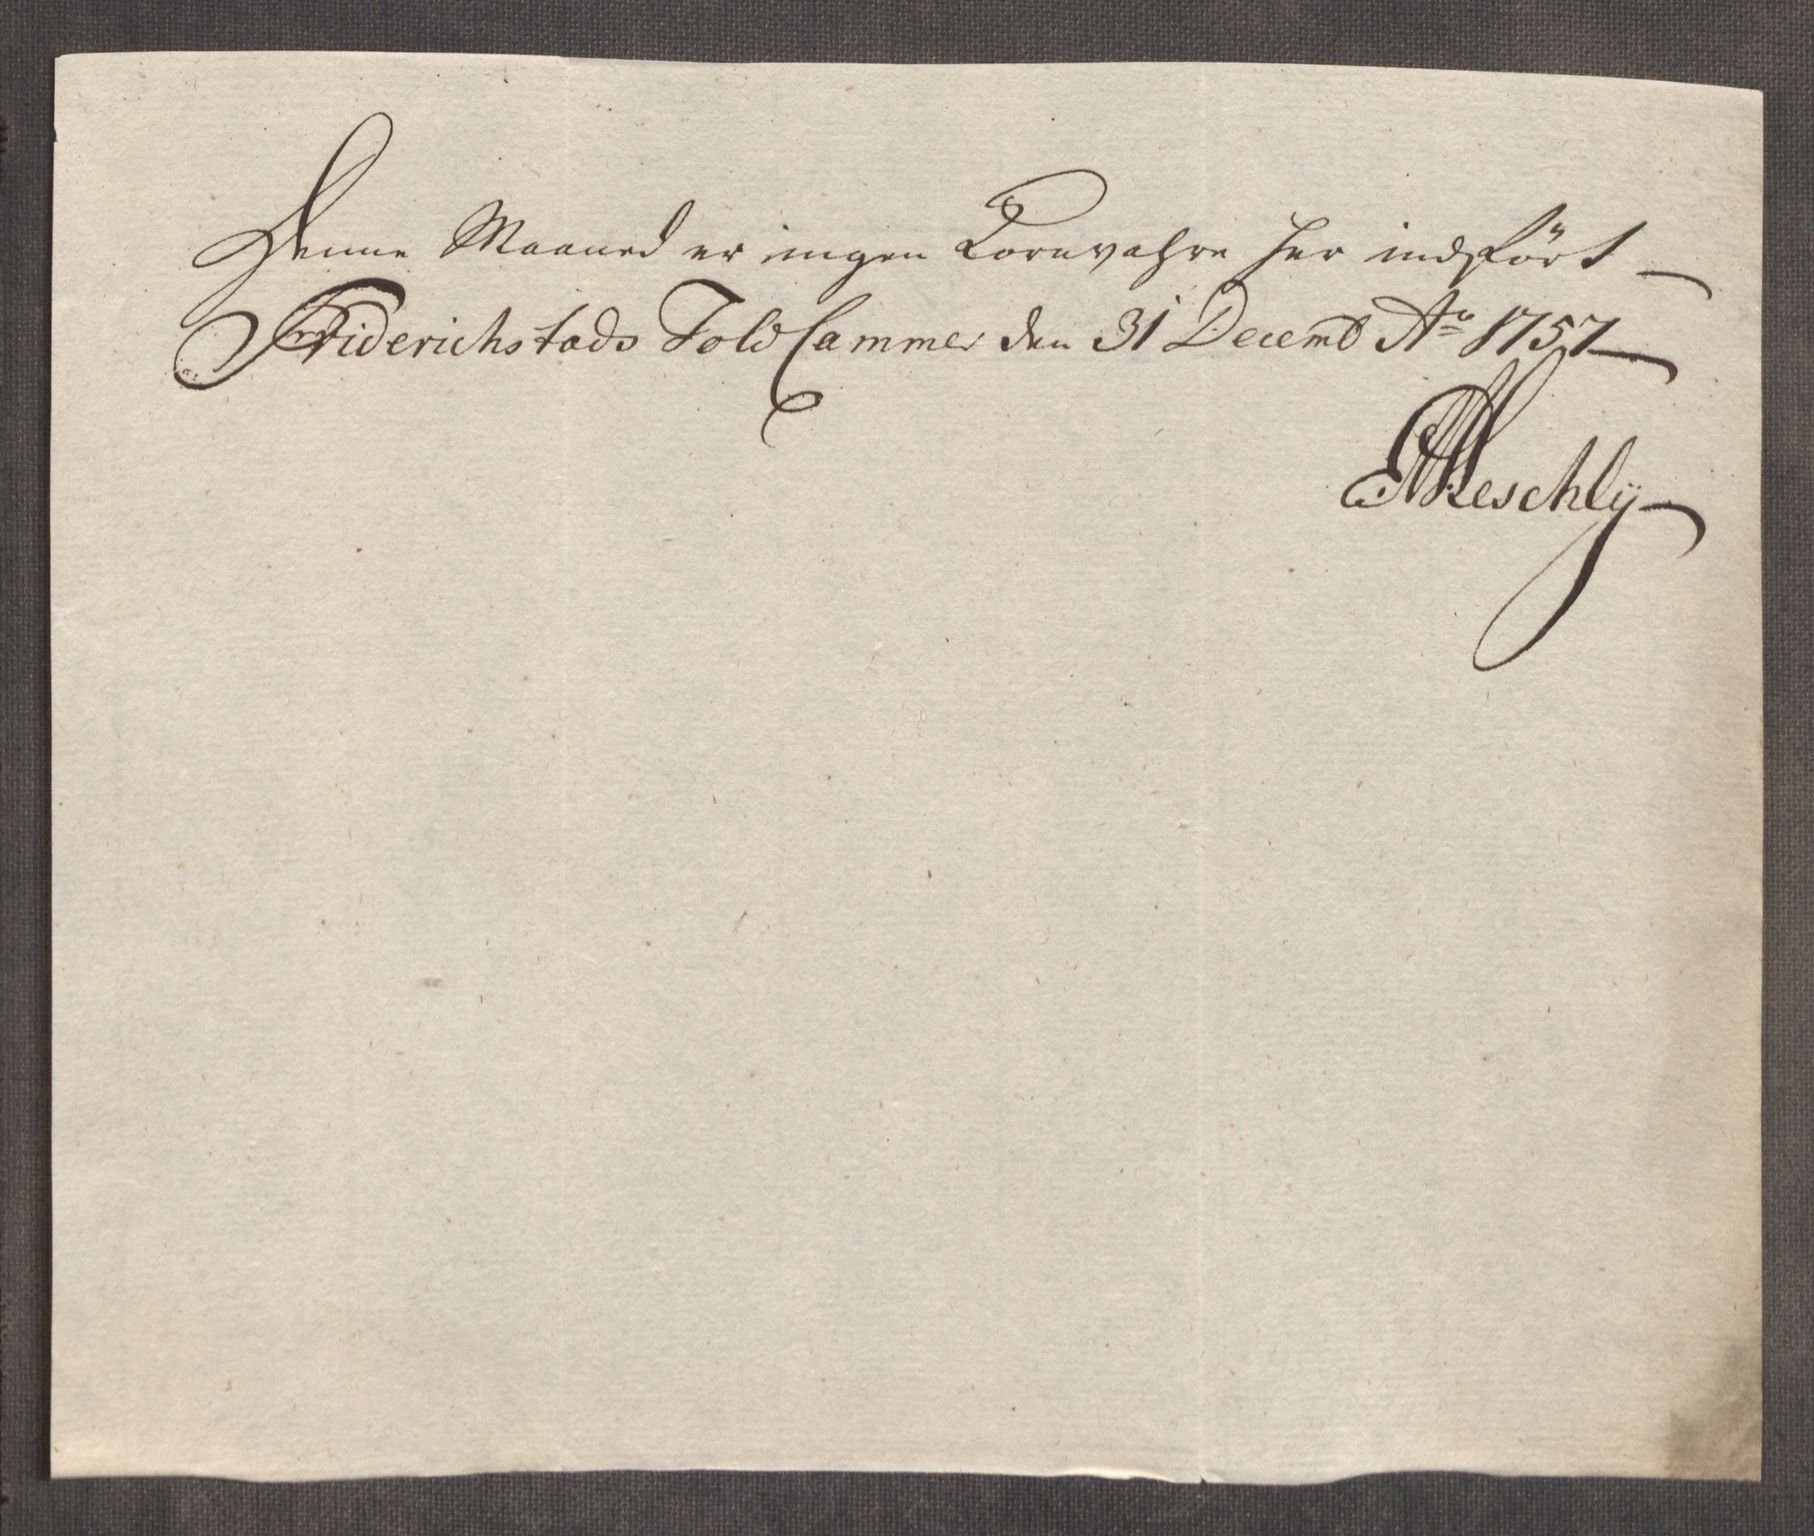 Denne Maaned er ingen Kornvahre her indført
Friderichstads Told Cammer den 31 Decemb Ao 1757